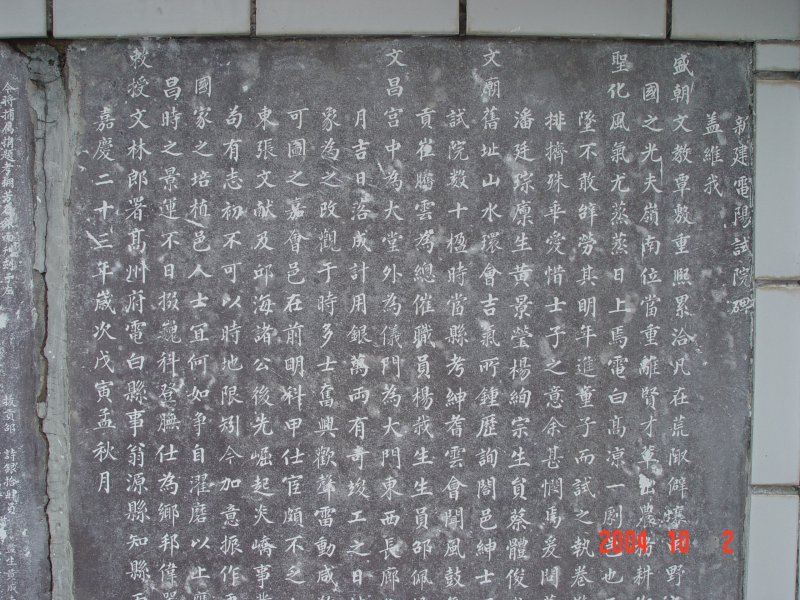 新建電陽試院碑
蓋維我
盛朝文教覃敷重熙累洽凡在荒陬僻壤
國之光夫嶺南位當重離賢才萃出農力耕
聖化風氣尤蒸蒸日上焉電白高涼一劇邑也
墜不敢辭勞其明年進童子而試之執卷
排擠殊乖愛惜士子之意余甚憫焉爰
潘廷琮廩生黃景瑩楊絢宗生員蔡體俊
文廟舊址山水環會吉氣所鍾歷詢闔邑紳士
試院數十楹時當縣考紳耆雲會聞風鼓
貢崔騰雲為總催職員楊我生生員邵佩
文昌宮中為大堂外為儀門為大門東西長廊
月吉日洛成計用銀萬兩有奇竣工之日
象為之改觀于時多士奮興歡聲雷動咸
可圖之嘉會邑在前明科甲仕宦頗不乏
東張文献及邱海諸公後先崛起炎嶠事業
苟有志初不可以時地限矧今加意振作
國家之培植邑人士宜何如争自濯磨以上
昌時之景運不日掇巍科登膴仕為鄉邦偉
敕授文林郎署高州府電白縣事翁源縣知縣
嘉慶二十三年歲次戊寅孟秋月
2004 10 2